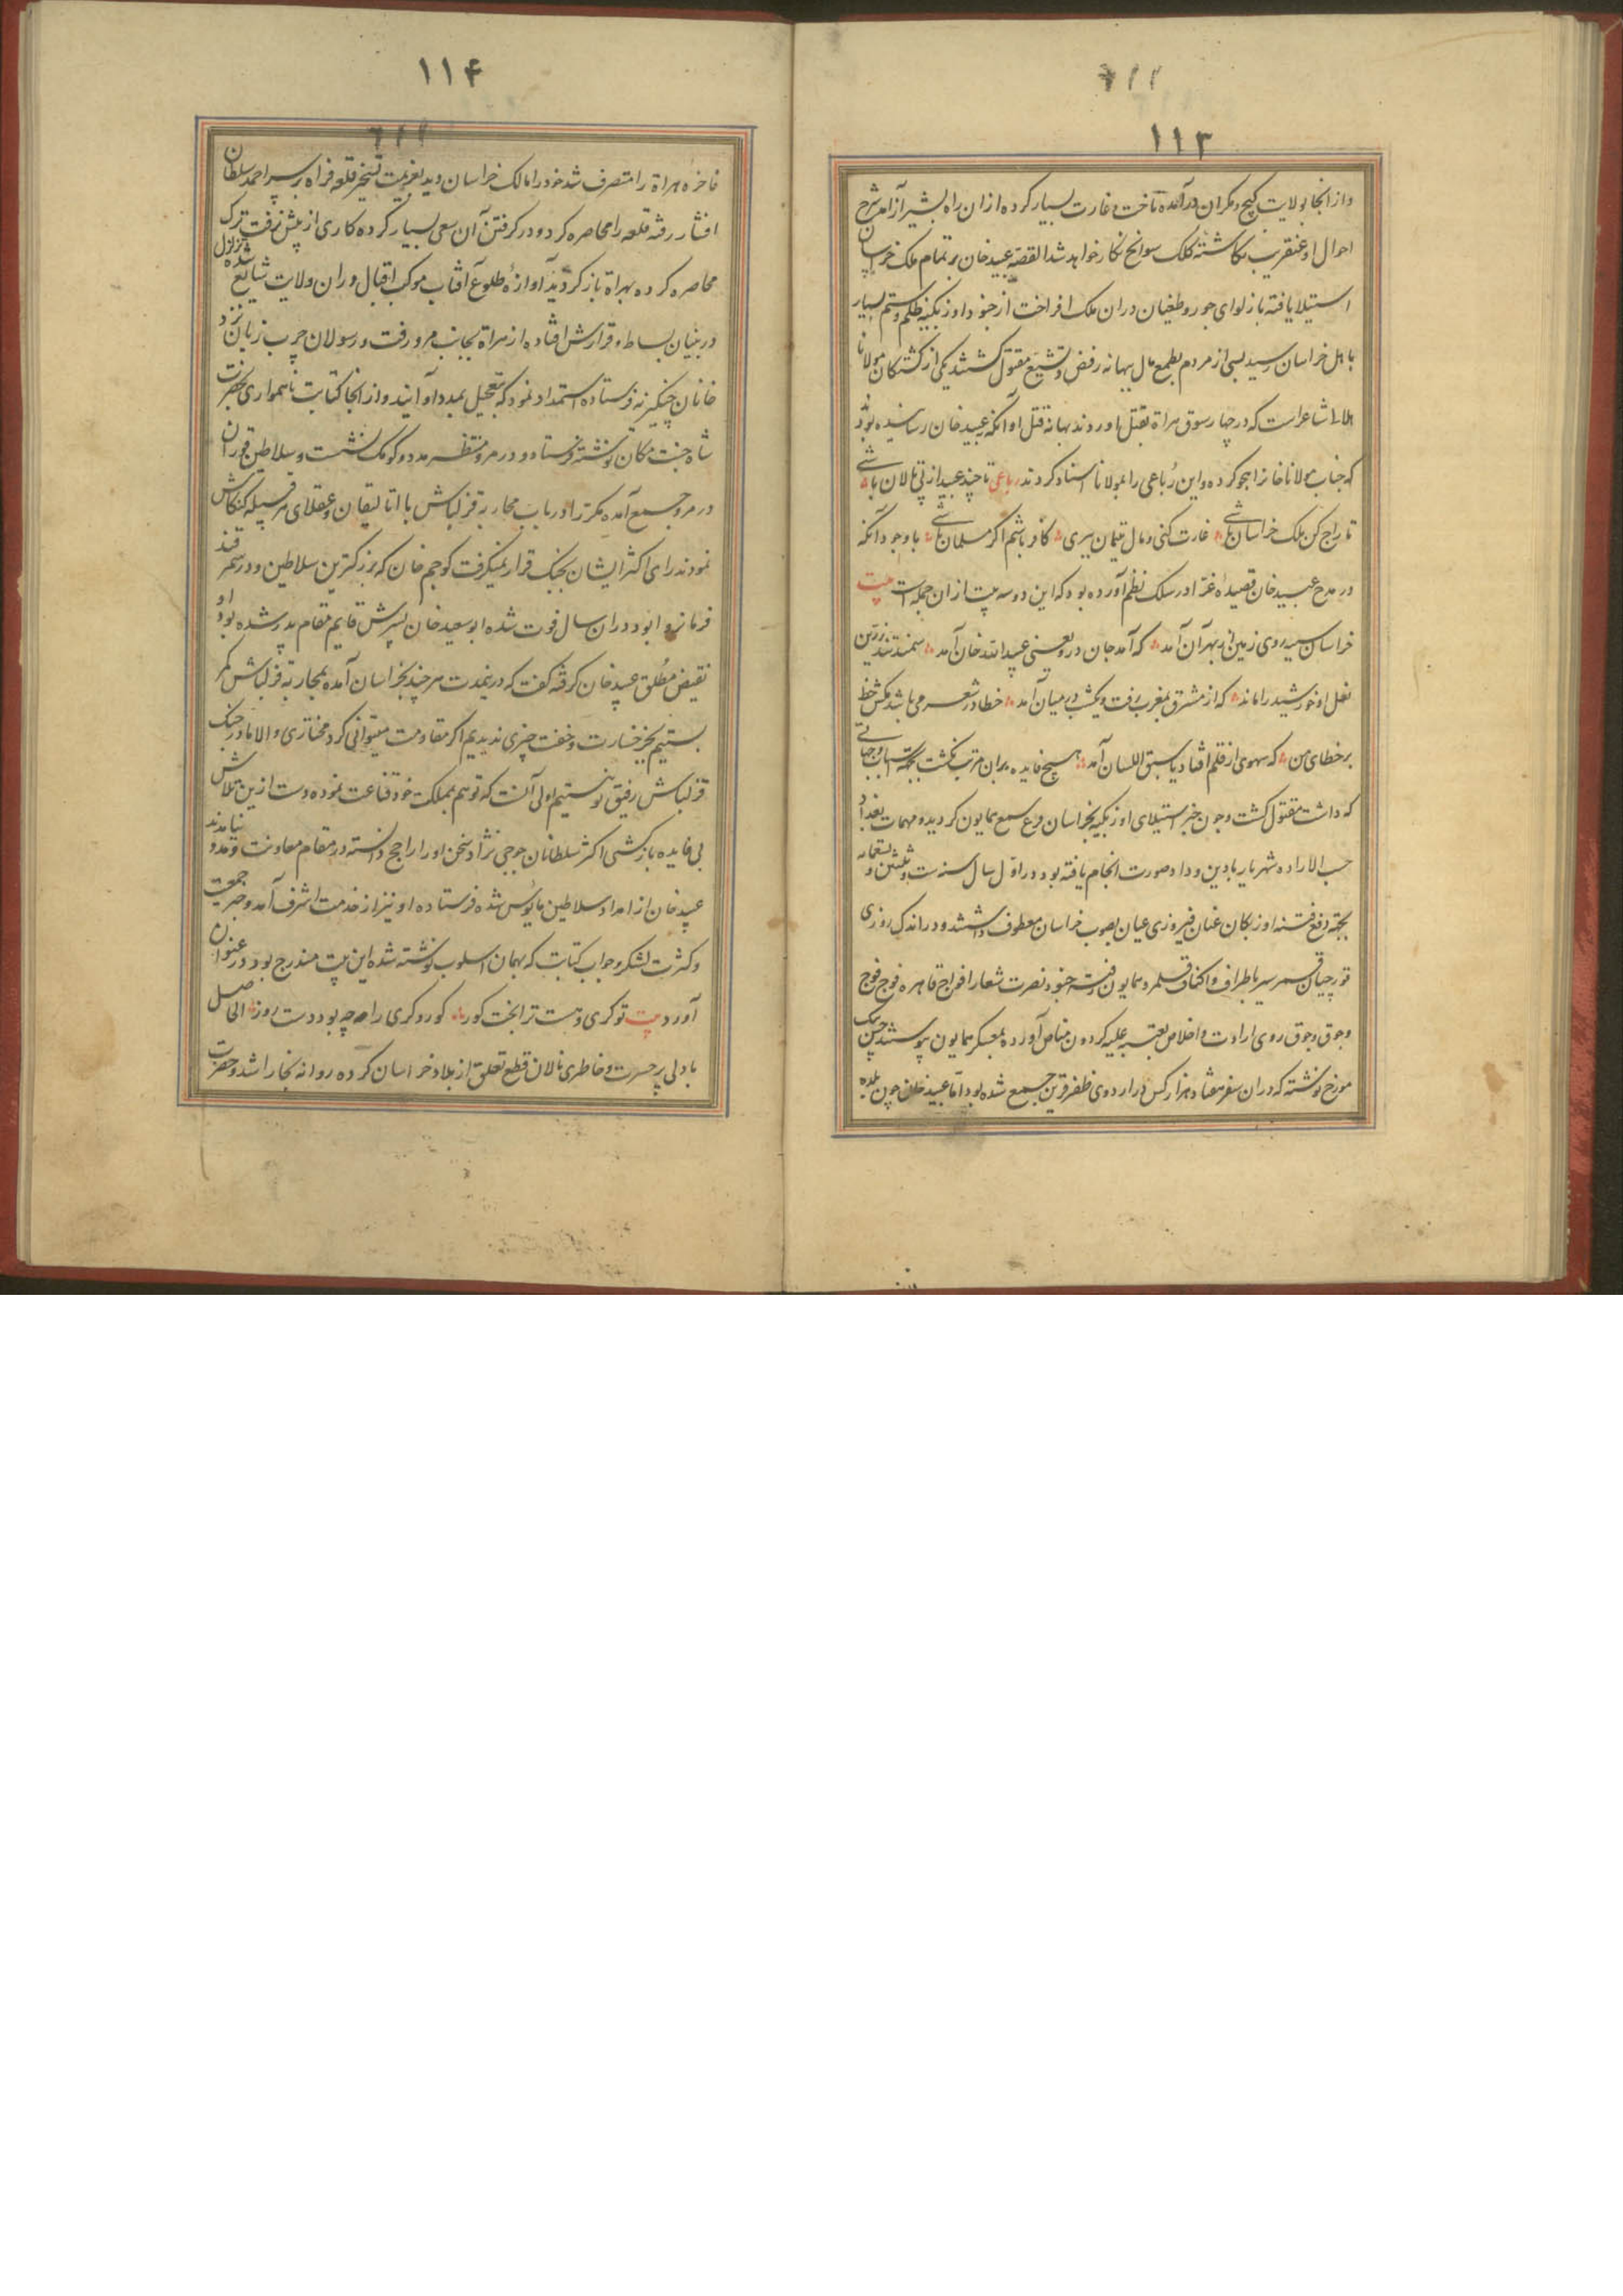 ۱۱۳
و از انجا بولایت کیج و مکران درآمده تاخت و غارت بسیار کرده از ان راه بشیراز آمد شرح
احوال او عنقریب نکاشتهٔ کلک سوانح نکار خواهد شد القصه عبید خان بر تمام ملک خراسان
استیلا یافته باز لوای جور و طغیان در ان ملک افراخت از جنود اوزبکیه ظلم و ستم بسیار
باهل خراسان رسید بسی از مردم بطمع مال ببهانه رفض و تشیع مقتول کشتند یکی از کشتکان مولانا
هلالی شاعر است که در چهار سوق هراة بقتل اوردند بهانه قتل او آنکه بعبید خان رسانیده بودند
که جناب مولانا خانرا هجو کرده و این رُباعی را بمولانا اسناد کردند رباعی تا چند عبید از پی تالان باشی
تاراج کن ملک خراسان باشی غارت کنی و مال یتیمان ببری کافر باشم اگر مسلمان باشی با وجود آنکه
در مدح عبید خان قصیدهٔ غرّا در سلک نظم آورده بود که این دو سه بیت از ان جمله است بیت
خراسان سینه روی زمین از بهر آن آمد که آمد جان درو یعنی عبید الله خان آمد سمند تند زرین
نعل او خورشید را ماند که از مشرق بمغرب رفت و یکشب در میان آمد خطا در شعر من باشد مکش خط
بر خطای من که سهوی از قلم افتاد یا سبق اللسان آمد هیچ فایده بران مرتب نکشت بجهة اسباب و جهاتی
که داشت مقتول کشت و چون خبر استیلای اوزبکیه بخراسان بمسامع همایون کردید و مهمات بغداد
حسب الاراده شهریار بادین و داد صورت انجام یافته بود در اوّل سال سنه ست و ثلثین و تسعمایه
بجهة دفع فتنه اوزبکان عنان فیروزی عیان بصوب خراسان معطوف داشتند و در اندک روزی
قورچیان قمر سیر باطراف و اکناف قلمرو همایون رفته جنود نصرت شعار افواج قاهره فوج فوج
و جوق جوق روی ارادت و اخلاص بعتبه علیه کردون مناص آورده بمعسکر همایون پیوستند حسن بیک
مورخ نوشته که در ان سفر هفتاد هزار کس در اردوی ظفر قرین جمع شده بود امّا عبید خان چون بلده
۱۱۴
فاخرهٔ هراة را متصرف شد خود را مالک خراسان دید بعزیمت تسخیر قلعه فراه بر سر احمد سلطان
افشار رفته قلعه را محاصره کرد و در کرفتن آن سعی بسیار کرده کاری از پیش نرفت ترک
محاصره کرده بهراة باز کردید آوازهٔ طلوع آفتاب موکب اقبال در ان ولایت شایع شده تزلزل
در بنیان بساط و قرارش افتاده از هراة بجانب مرو رفت و رسولان چرب زبان نزد
خانان چنکیزیه فرستاده استمداد نمود که بتعجیل بمدد او آیند و از انجا کتابت ناهمواری بحضرت
شاه جنت مکان نوشته فرستاد و در مرو منتظر مدد و کومک نشست و سلاطین توران
در مرو جمع آمده مکررا در باب محاربه قزلباش با اتالیقان و عقلای هر قبیله کنکاش
نمودند رای اکثر ایشان بجنک قرار نمیکرفت کوجم خان که بزرکترین سلاطین و در سمرقند
فرمانروا بود در ان سال فوت شده ابو سعید خان پسرش قایم مقام پدر شده بود او
نقیض مطلق عبید خان کرفته کفت که درینمدت هر چند بخراسان آمده بمحاربه قزلباش کمر
بستیم بجز خسارت و خفت چیزی ندیدیم اکر مقاومت میتوانی کرد مختاری و الا ما در جنک
قزلباش رفیق تو نیستیم اولی آنست که تو هم بمملکت خود قناعت نموده دست ازین تلاش
بی فایده باز کشی اکثر سلطانان جوجی نژاد سخن او را راجح دانسته در مقام معاونت و مدد نیامدند
عبید خان از امداد سلاطین مایوس شده فرستاده او نیز از خدمت اشرف آمد و خبر جمعیت
و کثرت لشکر و جواب کتابت که بهمان اسلوب نوشته شده این بیت مندرج بود در عنوان
آورد بیت تو کری و هست ترا بخت کور کور و کری را چه بود دست روز الحاصل
با دلی پر حسرت و خاطری نالان قطع تعلق از بلاد خراسان کرده روانه بخارا شد و حضرت